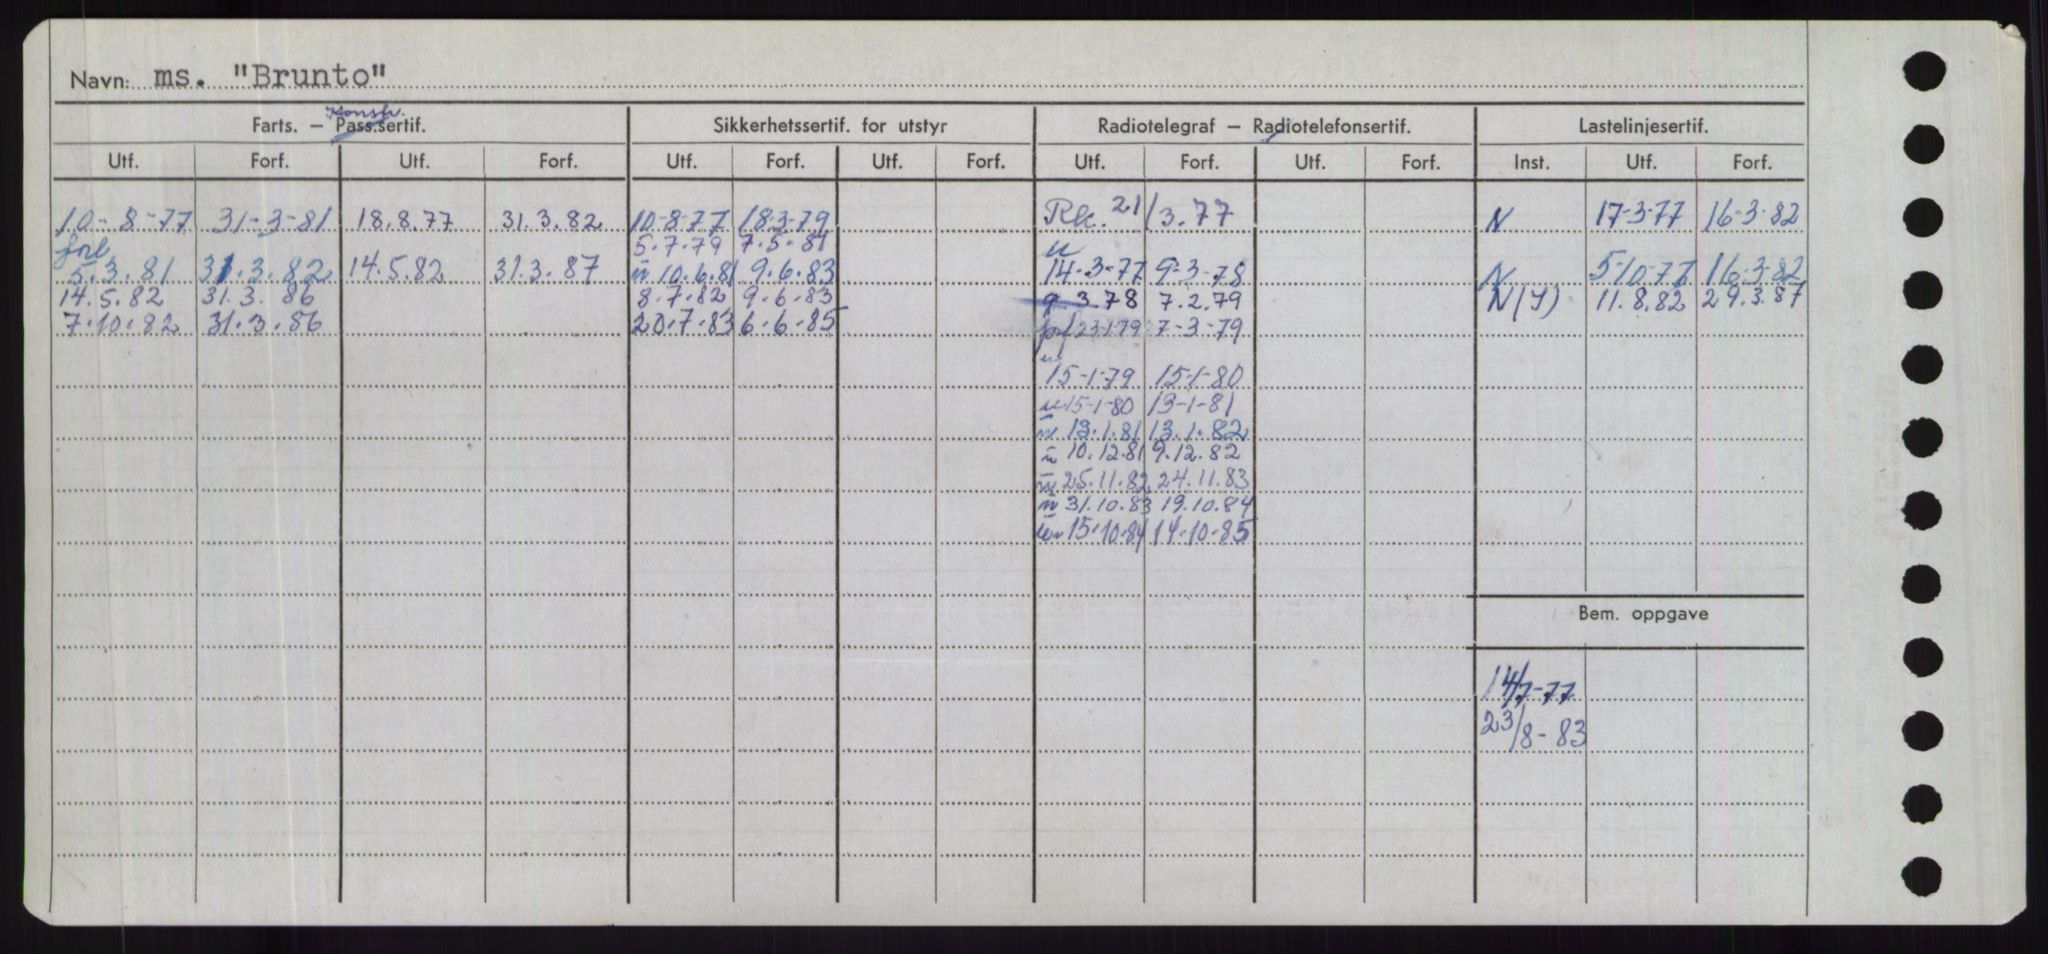 Navn: ms. "Brunto"
Konstr.
Farts. – Pass.sertif. Sikkerhetssertif. for utstyr Radiotelegraf – Radiotelefonsertif. Lastelinjesertif.
Utf. Forf. Utf. Forf. Utf. Forf. Utf. Forf. Utf. Forf. Utf. Forf. Inst. Utf. Forf.
10-8-77 31-3-81 18.8.77 31.3.82 10-8-77 18-3-79 Rk. 21/3.77 N 17-3-77 16-3-82
forl 5.7.79 7.5.81 u
5.3.81 31.3.82 14.5.82 31.3.87 u 10.6.81 9.6.83 14-3-77 9-3-78 N 5-10-77 16-3-82
14.5.82 31.3.86 8.7.82 9.6.83 9 3.78 7.2.79 N(I) 11.8.82 29.3.87
7.10.82 31.3.86 20.7.83 6.6.85 forl 23-1-79 7-3-79
u
15-1-79 15-1-80
u 15-1-80 13-1-81
u 13.1.81 13.1.82
u 10.12.81 9.12.82
u 25.11.82 24.11.83
u 31.10.83 19.10.84
15.10.84 14.10.85
Bem. oppgave
14/7-77
23/8-83